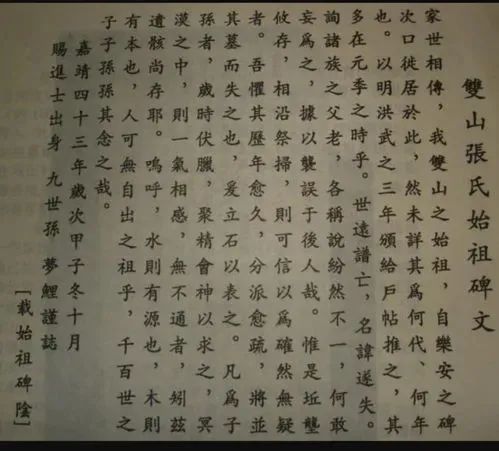 雙山張氏始祖碑文
家世相傳，我雙山之始祖，自樂安之碑
次口徙居於此，然未詳其爲何代、何年
也。以明洪武之三年頒給戶帖推之，其
多在元季之時乎。世遠譜亡，名諱遂失。
詢諸族之父老，各稱說紛然不一，何敢
妄爲之，據以襲誤于後人哉。惟是坵壟
攸存，相沿祭掃，則可信以爲確然無疑
者。吾懼其歷年愈久，分派愈疏，將並
其墓而失之也，爰立石以表之。凡爲子
孫者，歲時伏臘，聚精會神以求之，冥
漠之中，則一氣相感，無不通者，矧茲
遺骸尚存耶。嗚呼，水則有源也，木則
有本也，人可無自出之祖乎，千百世之
子子孫孫其念之哉。
嘉靖四十三年歲次甲子冬十月
賜進士出身 九世孫 夢鯉謹誌
[載始祖碑陰]